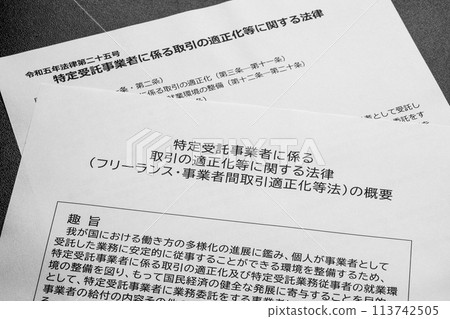 令和五年法律第二十五号
特定受託事業者に係る取引の適正化等に関する法律
条・第二条)
に係る取引の適正化(第三条―第十一条)
就業環境の整備(第十二条―第二十条)
者として受託し
特定受託事業者に係る
取引の適正化等に関する法律
(フリーランス・事業者間取引適正化等法)の概要
趣 旨
我が国における働き方の多様化の進展に鑑み、個人が事業者として
受託した業務に安定的に従事することができる環境を整備するため、
特定受託事業者に係る取引の適正化及び特定受託業務従事者の就業環
境の整備を図り、もって国民経済の健全な発展に寄与することを目的
として、特定受託事業者に業務委託をする事業
事業者の給付の内容その他
PIXTA
113742505